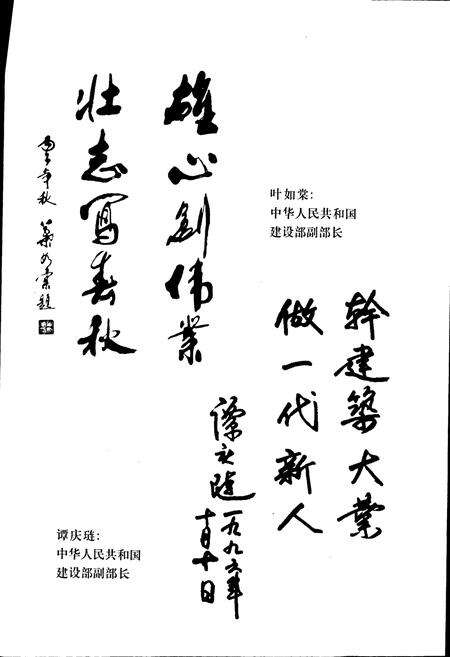 雄心創偉業
壮志寫春秋
丙子年秋 葉如棠題
叶如棠:
中华人民共和国
建设部副部长
幹建築大業
做一代新人
谭庆琏
一九九六年
十月十日
谭庆琏:
中华人民共和国
建设部副部长